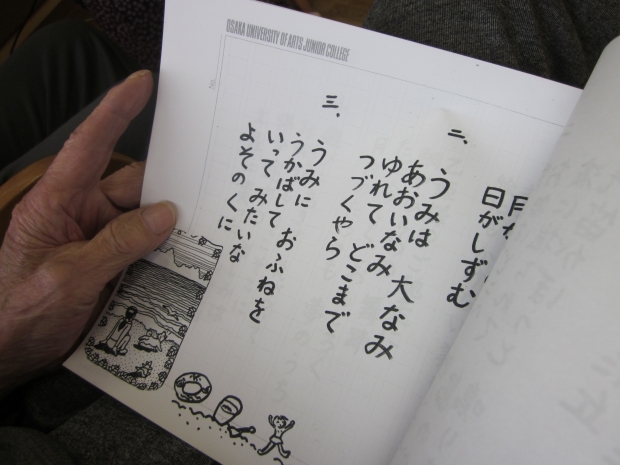 OSAKA UNIVERSITY OF ARTS JUNIOR COLLEGE
日がしずむ
二、
うみは 大なみ
あおいなみ
ゆれて どこまで
つづくやら
三、
うみに おふねを
うかばして
いって みたいな
よその くに